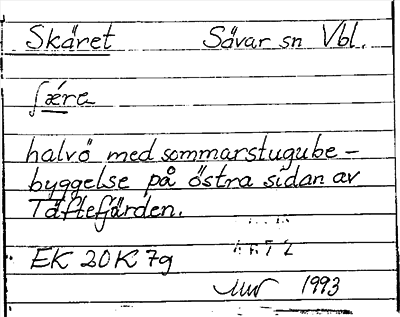 Skäret Sävar sn Vbl.
ʃæra
halvö med sommarstugube-
byggelse på östra sidan av
Täftefjärden.
EK 20K 7g
1993